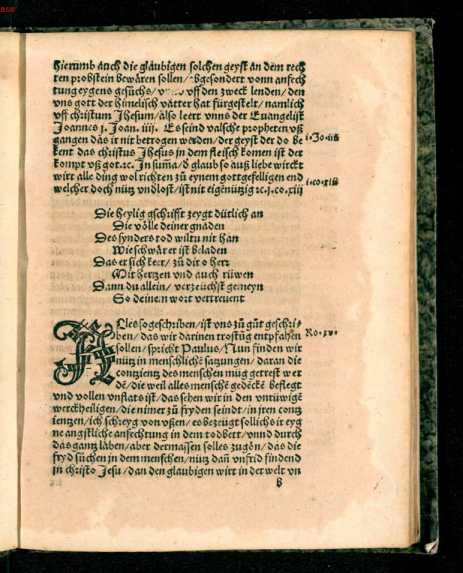 hierumb auch die gläubigen solchen geyst an dem rech
ten probstein bewären sollen / abgesondert vonn anfech
tung eygens gesůchs / vff den zweck lenden / den
vns gott der himelisch vatter hat fürgestelt / namlich
vff christum Jhesum / also leert vnns der Euangelist
Joannes j. Joan. iiij. Es seind valsche propheten vß
gangen das ir nit betrogen werden / der geyst der do be
kent das christus Jhesus in dem fleisch komen ist der
kompt vß got. ꝛc. In suma / d glaub so auß liebe wirckt
wirt alle ding wol richten zů eynem gottgefelligen end
welcher doch nütz vnd lost / ist nit eigēnützig ꝛc. j. co. xiij
i. Jo. iiii
i. co. xiii
Die heylig gschrifft zeygt dütlich an
Die völle deiner gnaden
Des synders tod wiltu nit han
Wie schwär er ist beladen
Das er sich keer / zů dir o herr
Mit hertzen vnd auch rüwen
Dann du allein / verzeüchst gemeyn
So deinem wort vertreuent
ALles so geschriben / ist vns zů gůt geschri-
ben / das wir darinen trostūg entpfahen
sollen / spricht Paulus / Nun finden wir
nütz in menschlichē satzungen / daran die
contzientz des menschen müg getrest wer
dē / die weil alles menschē gedēckē beflegt
vnd vollen vnflats ist / das sehen wir in den vnrüwigē
werckheiligen / die nimer zů fryden seindt / in iren contz
ientzen / ich schweyg von vßen / es bezeügt sollichs ir eyg
ne angstliche anfechtung in dem todbett / vnnd durch
das gantz läben / aber dermassen solles zugōn / das die
fryd sůchen in dem menschen / nütz dañ vnfrid findend
in christo Jesu / dan den glaubigen wirt in der welt vn
Ro. xv.
B